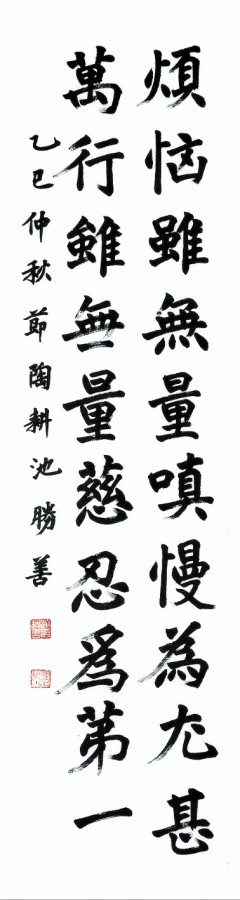 煩惱雖無量嗔慢為尤甚
萬行雖無量慈忍為第一
乙巳仲秋節陶耕池勝善